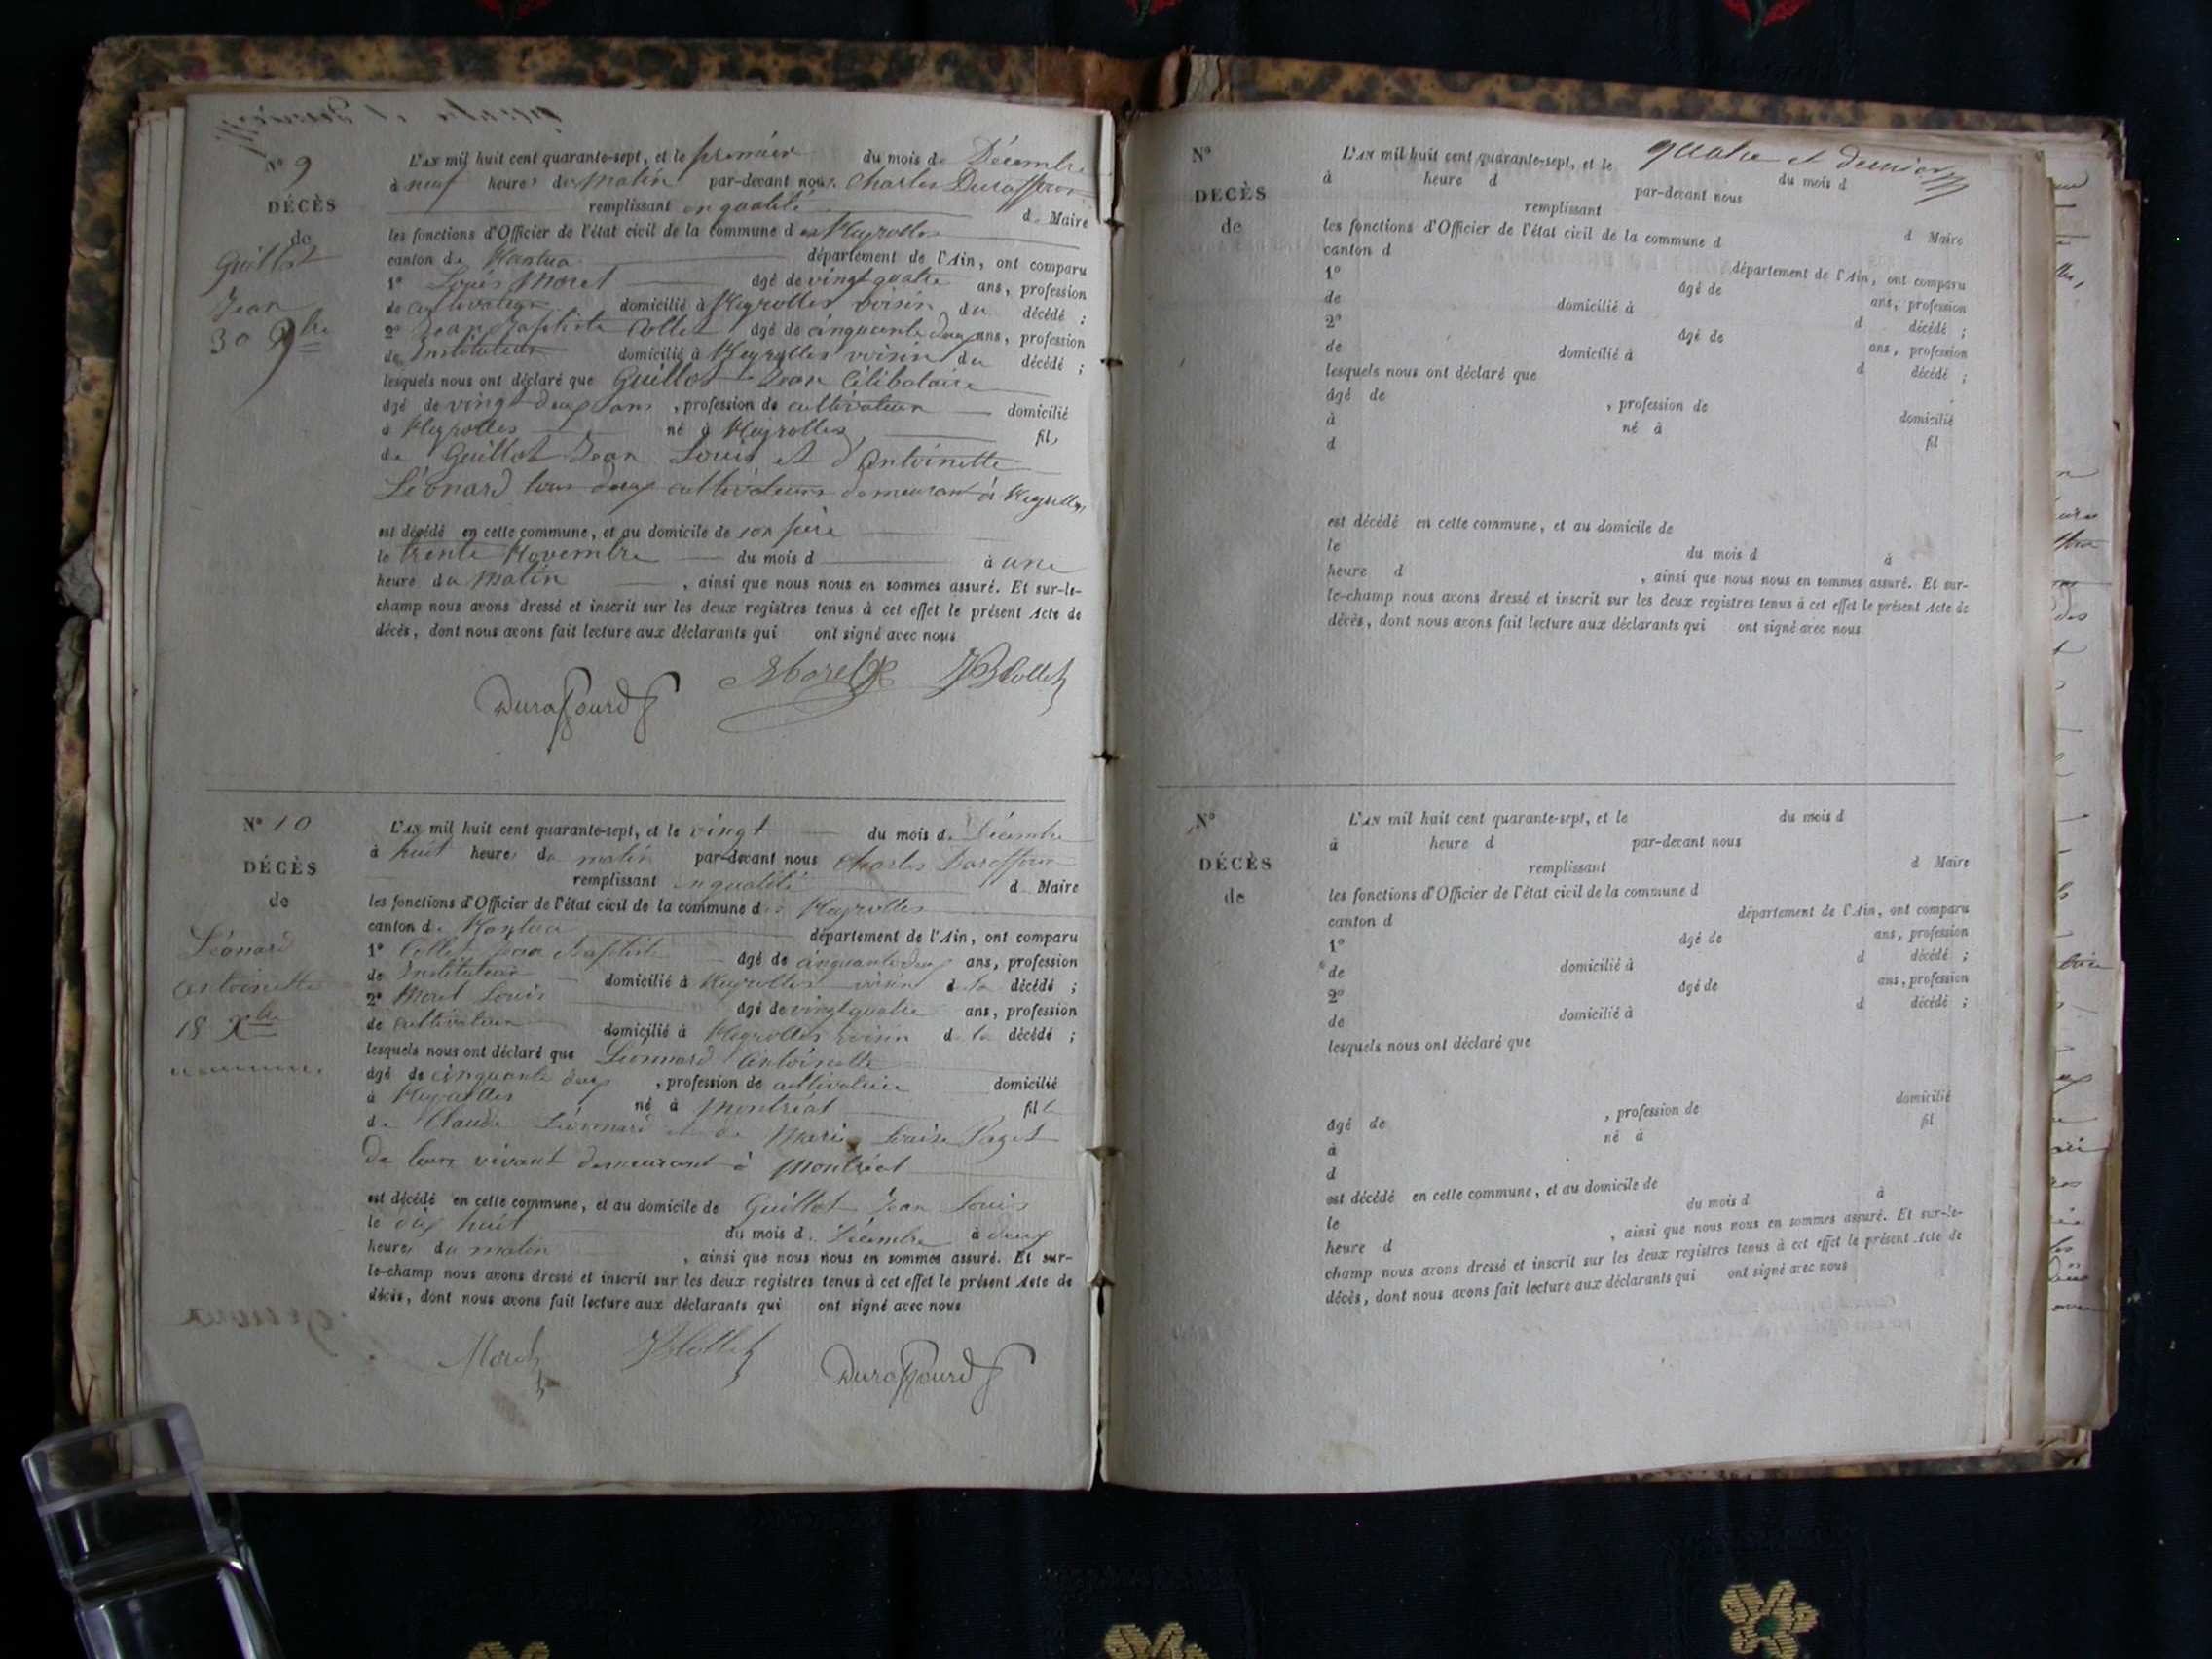 N° 9
DÉCÈS
de
Guillot
Jean
30 9bre
L'AN mil huit cent quarante-sept, et le premier du mois de Décembre
à neuf heures du matin par-devant nous Charles Duraffour
remplissant en qualité d Maire
les fonctions d'Officier de l'état civil de la commune de Neyrolles
canton de Nantua département de l'Ain, ont comparu
1° Louis Moret âgé de vingt quatre ans, profession
de cultivateur domicilié à Neyrolles voisin du décédé ;
2° Jean Baptiste Collet âgé de cinquante deux ans, profession
de Instituteur domicilié à Neyrolles voisin du décédé ;
lesquels nous ont déclaré que Guillot Jean Célibataire
âgé de vingt deux ans , profession de cultivateur domicilié
à Neyrolles né à Neyrolles fils
de Guillot Jean Louis et d'Antoinette
Léonard tous deux cultivateurs demeurant à Neyrolles
est décédé en cette commune, et au domicile de son père
le trente Novembre du mois d à une
heure du matin , ainsi que nous nous en sommes assuré. Et sur-le-
champ nous avons dressé et inscrit sur les deux registres tenus à cet effet le présent Acte de
décès, dont nous avons fait lecture aux déclarants qui ont signé avec nous
Duraffourd Moret JB Collet
N° 10
DÉCÈS
de
Léonard
Antoinette
18 Xbre
L'AN mil huit cent quarante-sept, et le vingt du mois de Décembre
à huit heures du matin par-devant nous Charles Duraffour
remplissant en qualité d Maire
les fonctions d'Officier de l'état civil de la commune des Neyrolles
canton de Nantua département de l'Ain, ont comparu
1° Collet Jean Baptiste âgé de cinquante deux ans, profession
de Instituteur domicilié à Neyrolles voisin de la décédé ;
2° Moret Louis âgé de vingt quatre ans, profession
de cultivateur domicilié à Neyrolles voisin de la décédé ;
lesquels nous ont déclaré que Léonnard Antoinette
âgé de cinquante deux , profession de cultivatrice domicilié
à Neyrolles né à Montréal fille
de Claude Léonnard et de Marie Louise Paget
de leurs vivant demeurant à Montréal
est décédé en cette commune, et au domicile de Guillot Jean Louis
le dix huit du mois de Décembre à deux
heures du matin , ainsi que nous nous en sommes assuré. Et sur-
le-champ nous avons dressé et inscrit sur les deux registres tenus à cet effet le présent Acte de
décès, dont nous avons fait lecture aux déclarants qui ont signé avec nous
Moret JB Collet Duraffourd
quatre et dernier
N°
DÉCÈS
de
L'AN mil huit cent quarante-sept, et le du mois d
à heure d par-devant nous
remplissant d Maire
les fonctions d'Officier de l'état civil de la commune d
canton d département de l'Ain, ont comparu
1° âgé de ans, profession
de domicilié à d décédé ;
2° âgé de ans, profession
de domicilié à d décédé ;
lesquels nous ont déclaré que
âgé de , profession de domicilié
à né à fil
d
est décédé en cette commune, et au domicile de
le du mois d à
heure d , ainsi que nous nous en sommes assuré. Et sur-
le-champ nous avons dressé et inscrit sur les deux registres tenus à cet effet le présent Acte de
décès, dont nous avons fait lecture aux déclarants qui ont signé avec nous
N°
DÉCÈS
de
L'AN mil huit cent quarante-sept, et le du mois d
à heure d par-devant nous
remplissant d Maire
les fonctions d'Officier de l'état civil de la commune d
canton d département de l'Ain, ont comparu
1° âgé de ans, profession
de domicilié à d décédé ;
2° âgé de ans, profession
de domicilié à d décédé ;
lesquels nous ont déclaré que
âgé de , profession de domicilié
à né à fil
d
est décédé en cette commune, et au domicile de
le du mois d à
heure d , ainsi que nous nous en sommes assuré. Et sur-le-
champ nous avons dressé et inscrit sur les deux registres tenus à cet effet le présent Acte de
décès, dont nous avons fait lecture aux déclarants qui ont signé avec nous